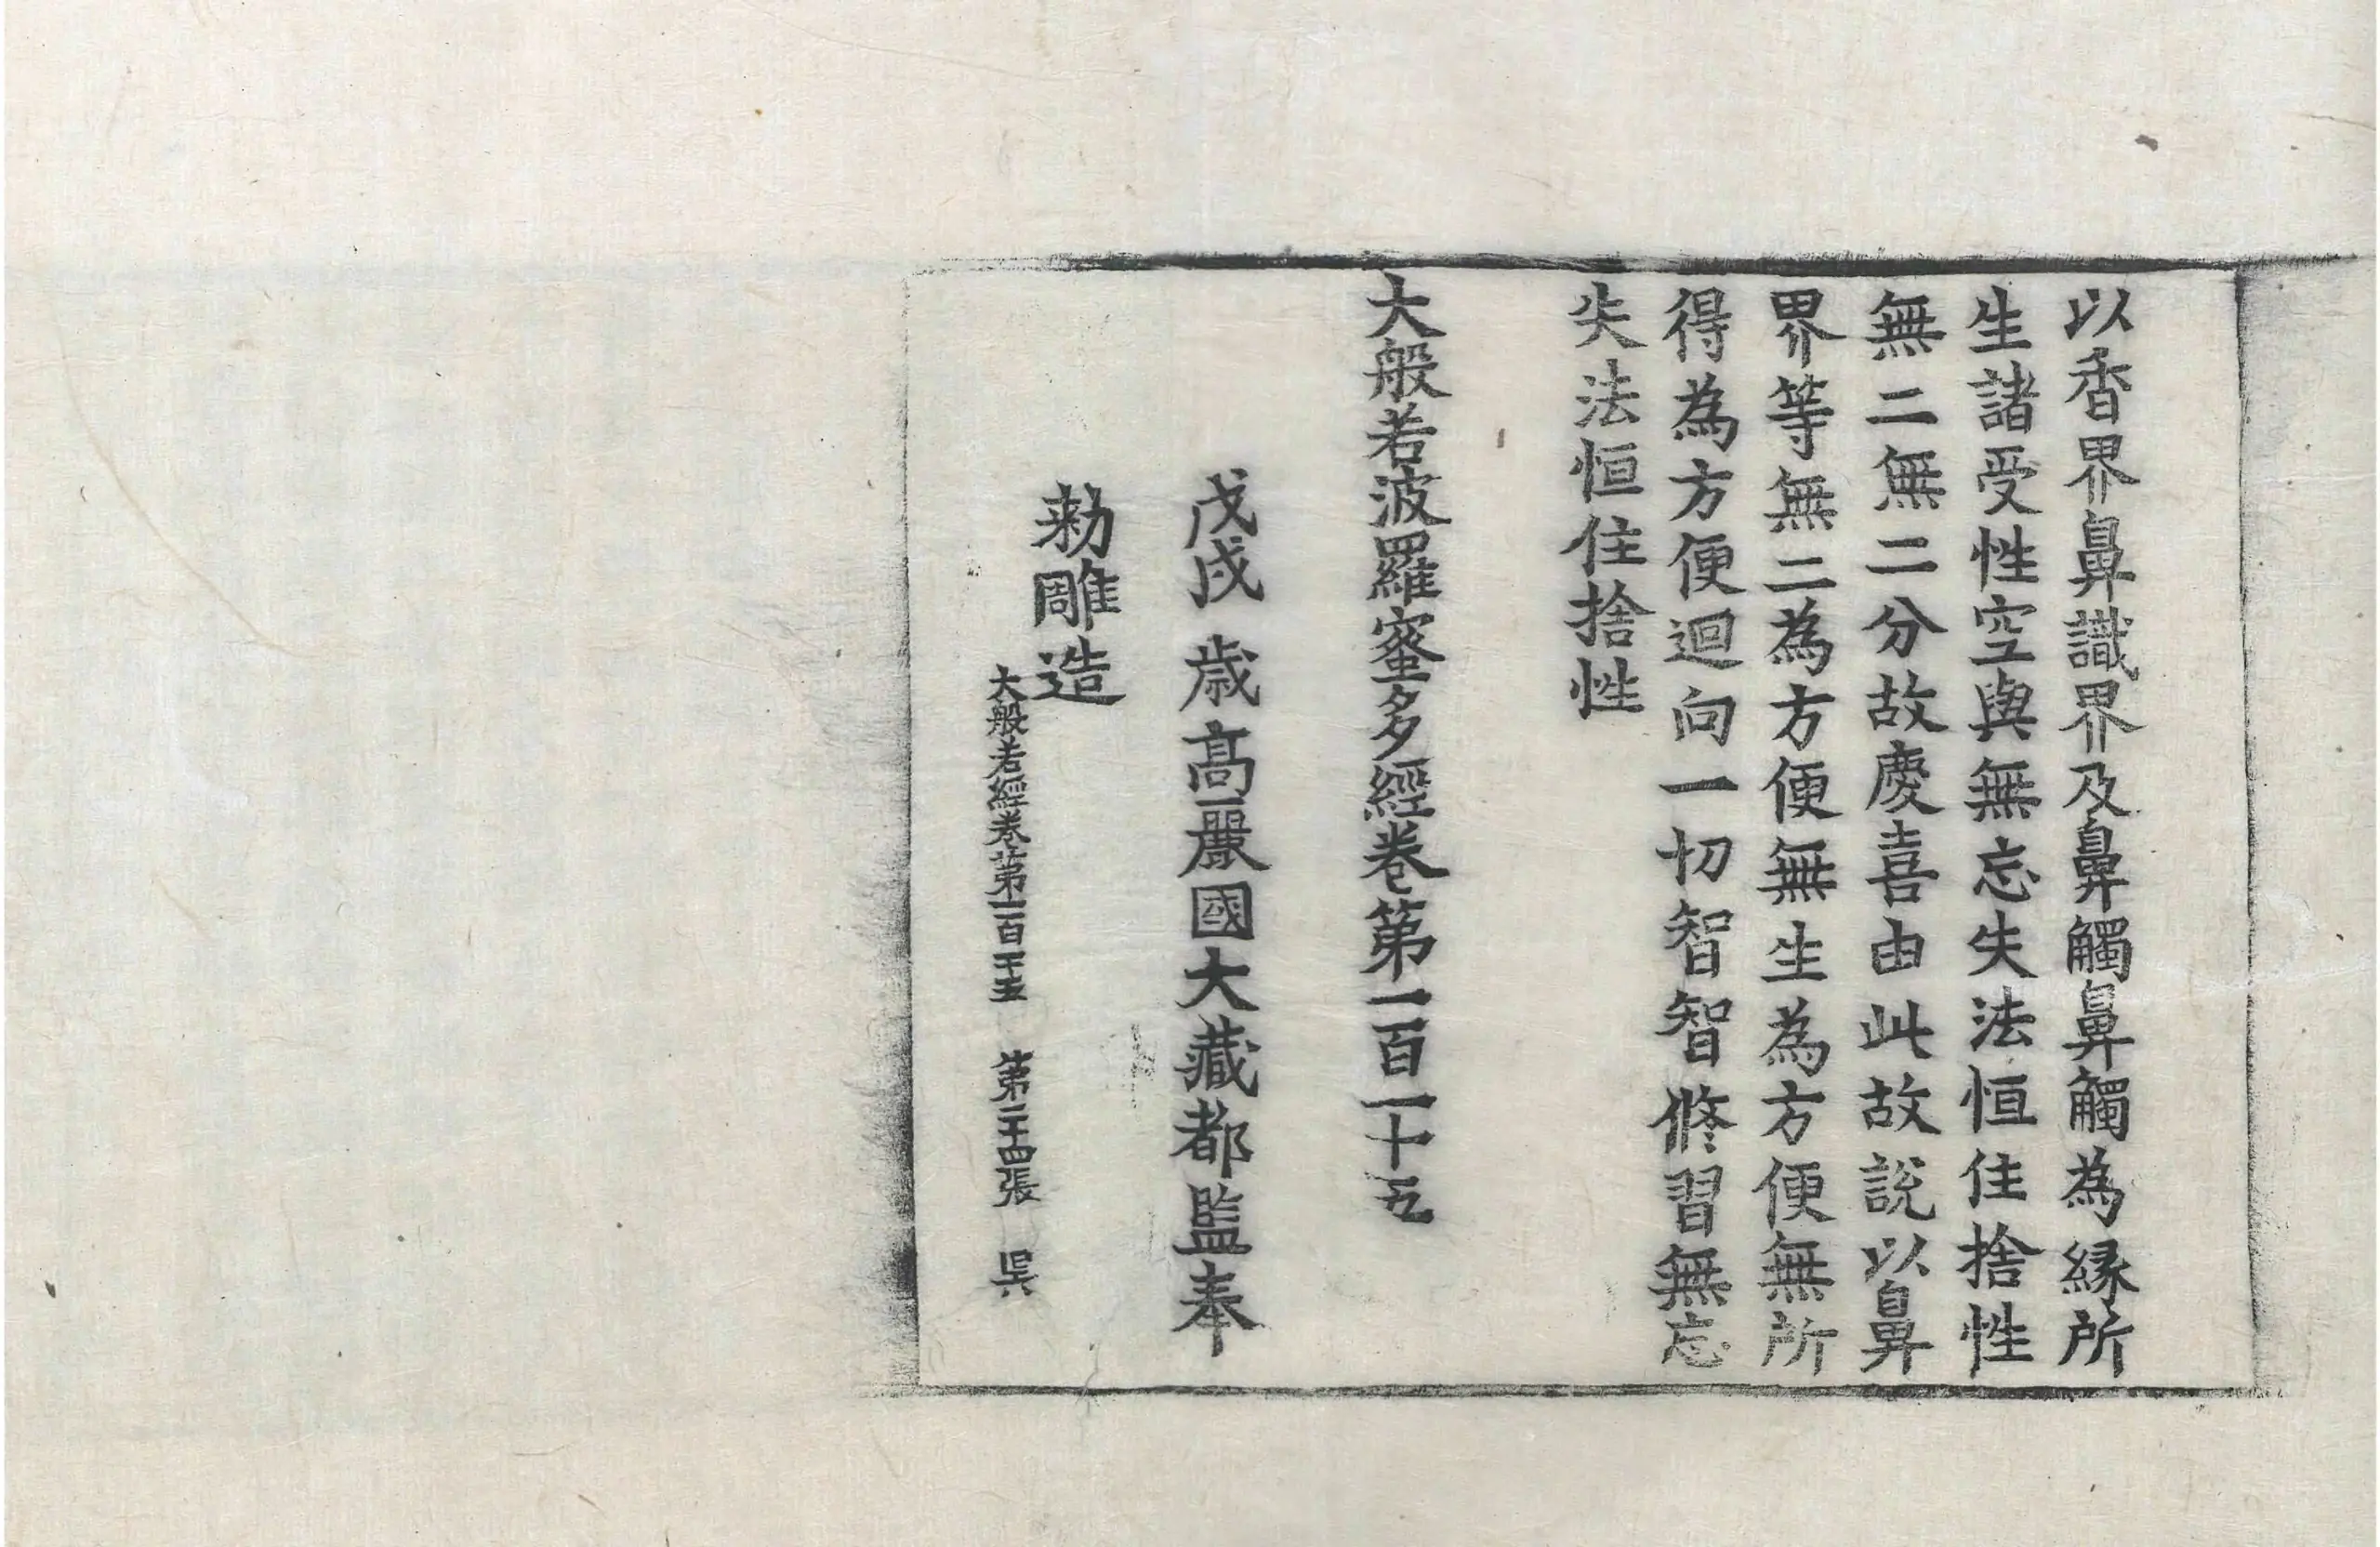 以香界鼻識界及鼻觸鼻觸為緣所
生諸受性空與無忘失法恒住捨性
無二無二分故慶喜由此故說以鼻
界等無二為方便無生為方便無所
得為方便迴向一切智智修習無忘
失法恒住捨性
大般若波羅蜜多經卷第一百一十五
戊戌歲高麗國大藏都監奉
勑雕造
大般若經卷第一百一十五 第二十四張 昃